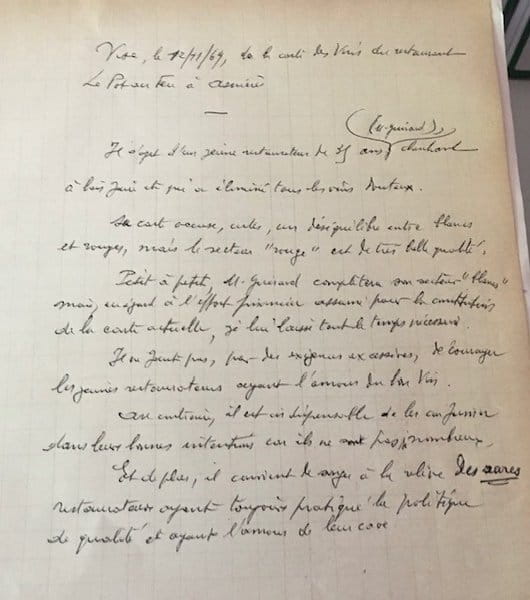 Visa, le 12/11/69, de la carte des Vins du restaurant
Le Pot au Feu à Asnières
(M. Guérard)
Il s'agit d'un jeune restaurateur de 35 ans cherchant
à bien faire et qui a éliminé tous les vins douteux.
Sa carte accuse, certes, un déséquilibre entre blancs
et rouges, mais le secteur "rouge" est de très belle qualité.
Petit à petit, M. Guérard complètera son secteur "blancs"
mais, eu égard à l'effort financier assumé pour la constitution
de la carte actuelle, je lui laisse tout le temps nécessaire.
Il ne faut pas, par des exigences excessives, décourager
les jeunes restaurateurs ayant l'amour du bon Vin.
Au contraire, il est indispensable de les confirmer
dans leurs bonnes intentions car ils ne sont pas nombreux.
Et de plus, il convient de songer à la relève des rares
restaurateurs ayant toujours pratiqué la politique
de qualité et ayant l'amour de leur cave